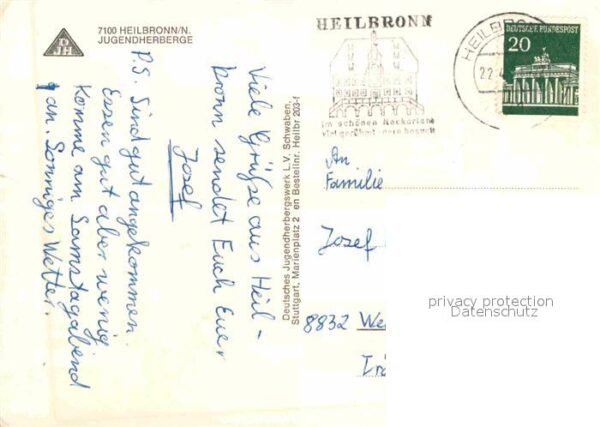 DJH
7100 HEILBRONN/N.
JUGENDHERBERGE
Viele Grüße aus Heil-
bronn sendet Euch Euer
Josef
P.S. Sind gut angekommen.
Essen gut aber wenig
Komme am Samstagabend
an. Sonniges Wetter.
Deutsches Jugendherbergswerk L.V. Schwaben,
Stuttgart, Marienplatz 2 en Bestellnr. Heilbr 203-f
HEILBRONN
im schönen Neckarland
viel gerühmt - gern besucht
HEILBRO
22.4
DEUTSCHE BUNDESPOST
20
An
Familie
Josef
8832 We
privacy protection
Datenschutz